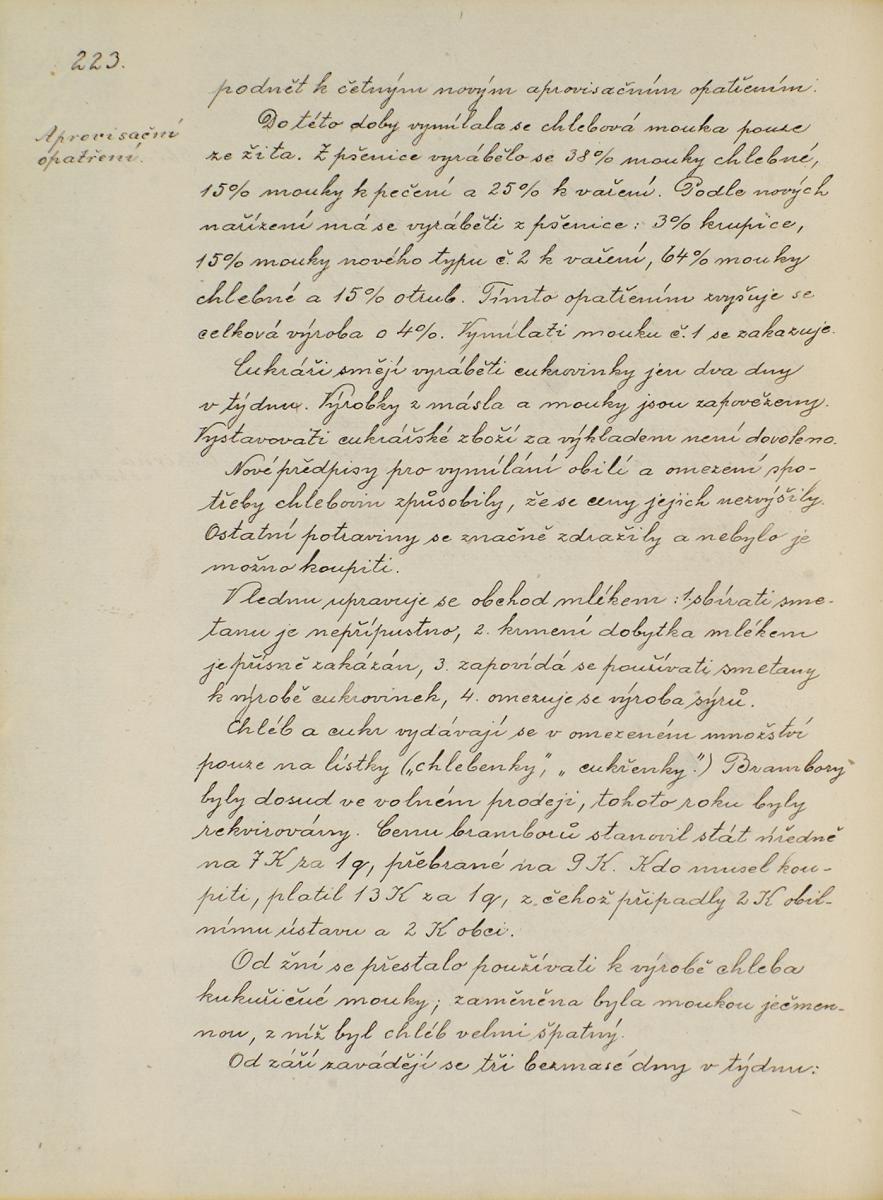 223.
podnět k četným novým aprovisačním opatřením.
Aprovisační
opatření.
Do této doby vymílala se chlebová mouka pouze
ze žita. Z pšenice vyrábělo se 38% mouky chlebné,
15% mouky k pečení a 25% k vaření. Podle nových
nařízení má se vyráběti z pšenice: 3% krupice,
15% mouky nového typu č. 2 k vaření, 64% mouky
chlebné a 15% otrub. Tímto opatřením zvyšuje se
celková výroba o 4%. Vymílati mouku č. 1 se zakazuje.
Cukráři smějí vyráběti cukrovinky jen dva dny
v týdnu. Výrobky z másla a mouky jsou zapovězeny.
Vystavovati cukrářské zboží za výkladem není dovoleno.
Nové předpisy pro vymílání obilí a omezení spo-
třeby chlebovin způsobily, že se ceny jejich nezvýšily.
Ostatní potraviny se značně zdražily a nebylo je
možno koupiti.
V lednu upravuje se obchod mlékem: 1. sbírati sme-
tanu je nepřípustno, 2. krmení dobytka mlékem
je přísně zakázán, 3. zapovídá se používati smetany
k výrobě cukrovinek, 4. omezuje se výroba sýrů.
Chléb a cukr vydávají se v omezeném množství
pouze na lístky („chlebenky“, „cukřenky“.) Brambory
byly dosud ve volném prodeji, tohoto roku byly
rekvirovány. Cenu bramborů stanovil stát úředně
na 7 K za 1 q, přebrané na 9 K. Kdo musel kou-
piti, platil 13 K za 1 q, z čehož připadly 2 K obil-
nímu ústavu a 2 K obci.
Od žní se přestalo používati k výrobě chleba
kukuřičné mouky; zaměněna byla moukou ječmen-
nou, z níž byl chléb velmi špatný.
Od září zavádějí se tři bezmasé dny v týdnu: